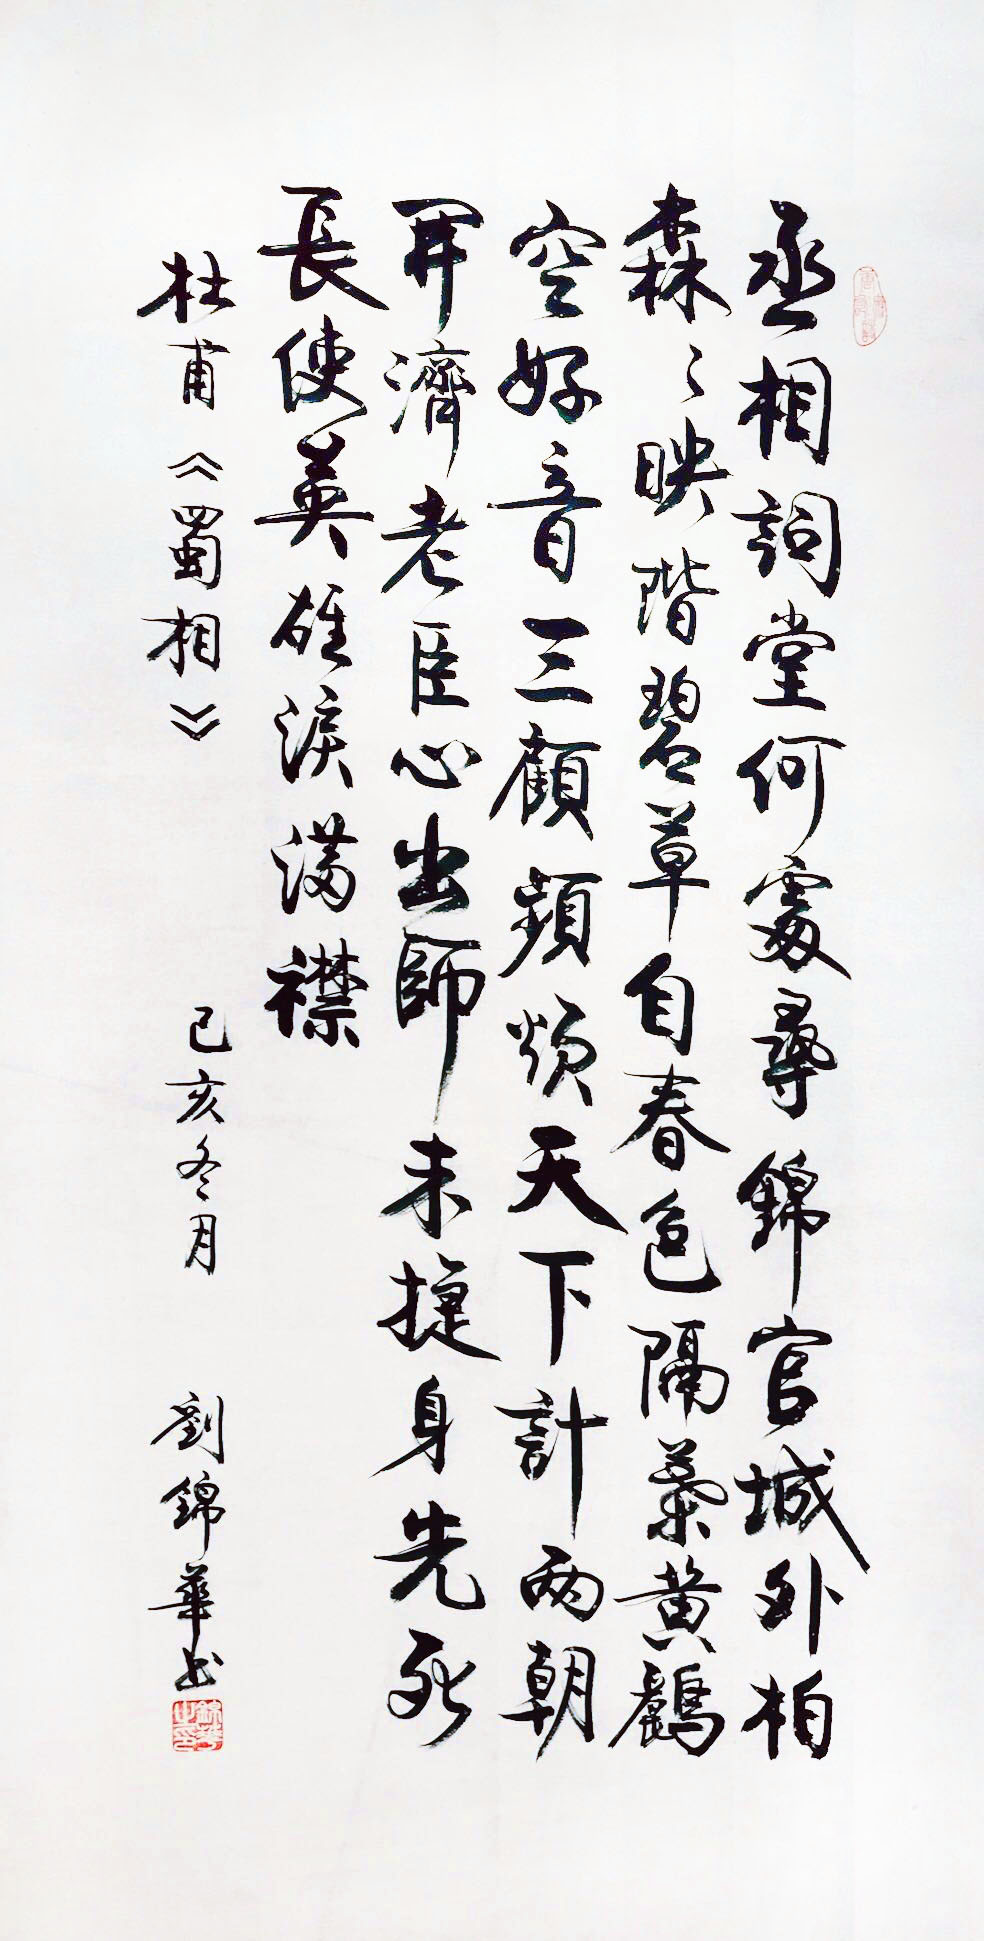 丞相詞堂何處尋錦官城外柏
森〻映階碧草自春色隔葉黄鸝
空好音三顧頻煩天下計兩朝
開濟老臣心出師未捷身先死
長使英雄淚滿襟
杜甫《蜀相》 己亥冬月 劉錦華书
錦華之印